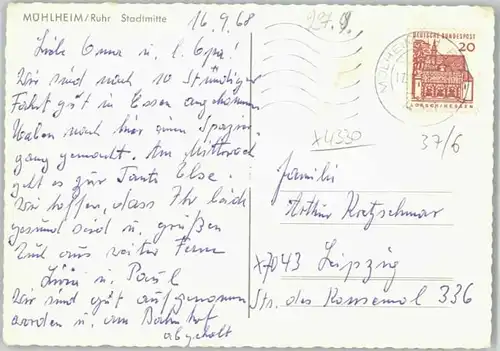 MÜHLHEIM/Ruhr Stadtmitte
16.9.68
27.9.
Liebe Oma u. l. Opa!
Wir sind nach 10 Stündiger
Fahrt gut in Essen angekommen
Haben noch hier einen Spazier-
gang gemacht. Am Mittwoch
geht es zur Tante Else.
Wir hoffen, dass Ihr beide
gesund seid u. grüßen
Euch aus weiter Ferne
u. Paul
Wir sind gut aufgenommen
worden u. am Bahnhof
abgeholt
DEUTSCHE BUNDESPOST
20
LORSCH/HESSEN
MÜLHEIM
x4330
37/6
Familie
Arthur Kretschmar
x7043 Leipzig
Str. des Komsomol 336